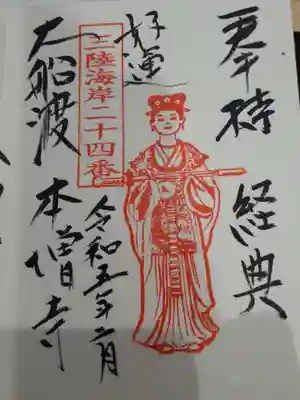 奉持
経典
好運
三陸海岸二十四番
令和五年二月
大船渡
本増寺